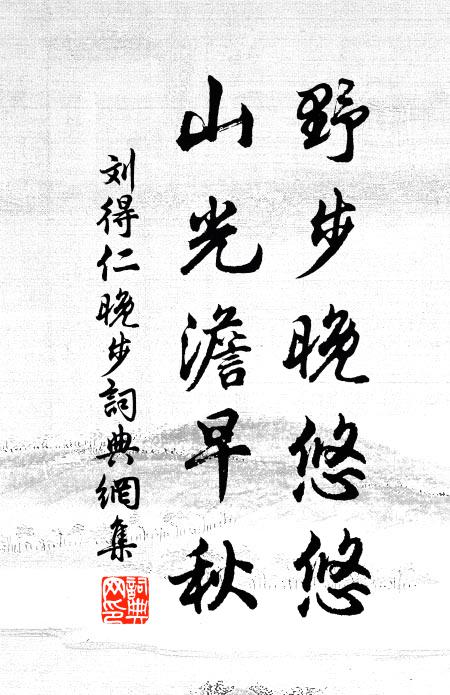 野步晚悠悠
山光澹早秋
刘得仁晚步詞典網集
詞典
网印